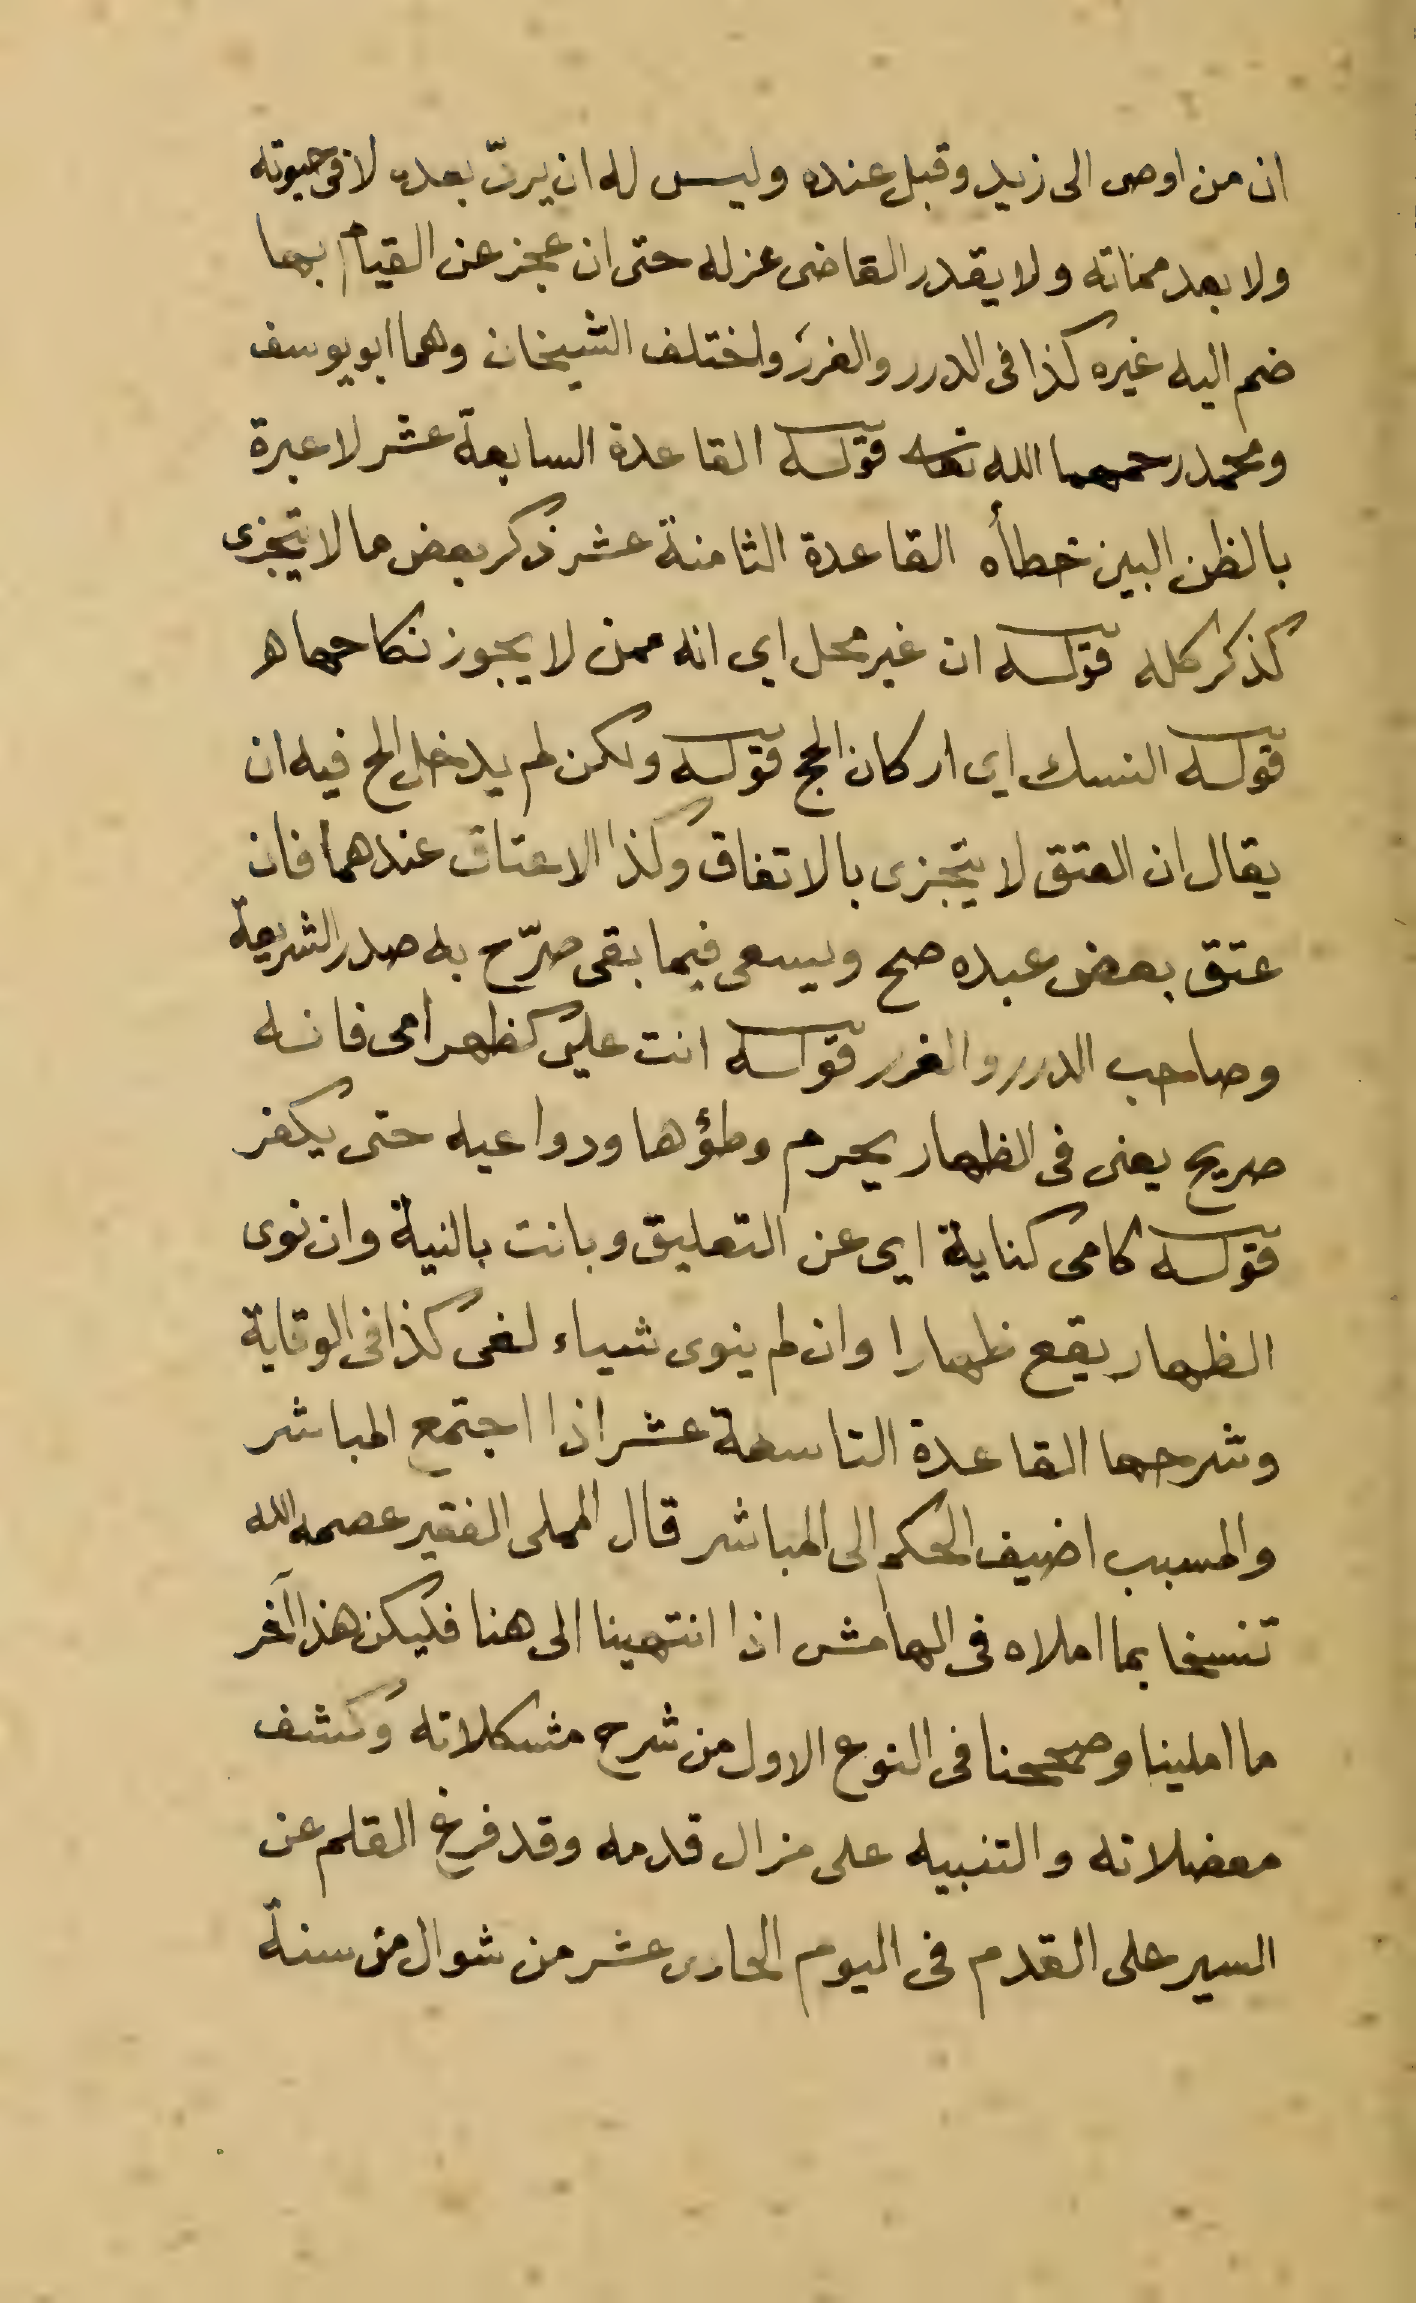 ان من اوصى الى زيد وقبل عنده وليس له ان يردّ بعده لا فى حيوته
ولا بعد مماته ولا يقدر القاضى عزله حتى ان عجز عن القيام بها
ضم اليه غيره كذا فى الدرر والغرر واختلف الشيخان وهما ابو يوسف
ومحمد رحمهما الله تعالى قوله القاعدة السابعة عشر لا عبرة
بالظن البين خطأه القاعدة الثامنة عشر ذكر بعض ما لا يتجزى
كذكر كله قوله ان غير محل اى انه ممن لا يجوز نكاحهما هـ
قوله النسك اى اركان الحج قوله ولكن لم يدخل الخ فيه ان
يقال ان العتق لا يتجزى بالاتفاق وكذا الاعتاق عندهما فان
عتق بعض عبده صح ويسعى فيما بقى صرّح به صدر الشريعة
وصاحب الدرر والغرر قوله انت علىّ كظهر امى فانه
صريح يعنى فى الظهار يحرم وطؤها ودواعيه حتى يكفر
قوله كامى كناية اى عن التعليق وبانت بالنية وان نوى
الظهار يقع ظهارا وان لم ينوى شياء لغى كذا فى الوقاية
وشرحها القاعدة التاسعة عشر اذا اجتمع المباشر
والمسبب اضيف الحكم الى المباشر قال المملى الفقير عصمه الله
تنسخا بما املاه فى الهامش اذا انتهينا الى هنا فليكن هذا آخر
ما املينا وصححنا فى النوع الاول من شرح مشكلاته وكشف
معضلاته والتنبيه على مزال قدمه وقد فرغ القلم عن
السير على القدم فى اليوم الحادى عشر من شوال من سنة